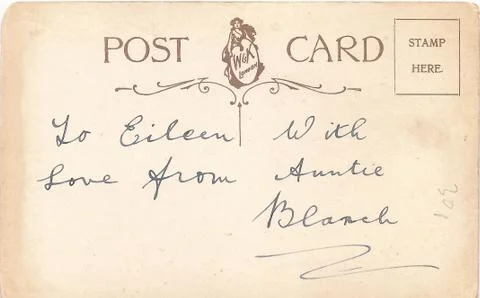 POST CARD
W&K
LONDON
STAMP
HERE.
To Eileen With
Love from Auntie
Blanch